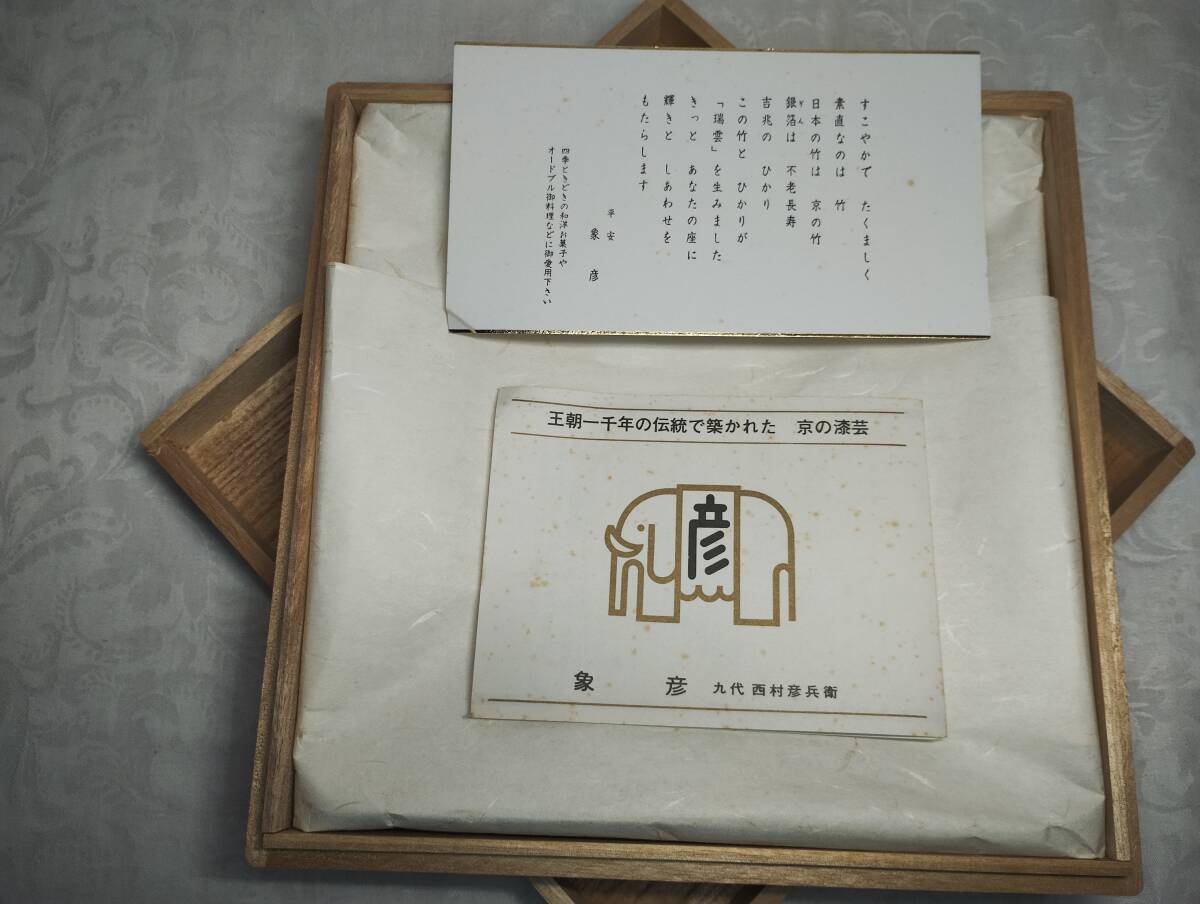 すこやかで たくましく
素直なのは 竹
日本の竹は 京の竹
銀箔は 不老長寿
ぎん
吉兆の ひかり
この竹と ひかりが
「瑞雲」を生みました
きっと あなたの座に
輝きと しあわせを
もたらします
平安
象彦
四季ときどきの和洋お菓子や
オードブル御料理などに御愛用下さい
王朝一千年の伝統で築かれた 京の漆芸
彦
象 彦 九代 西村彦兵衛